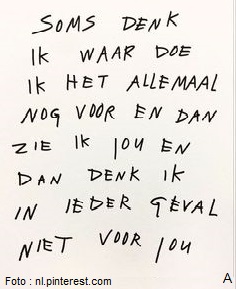 SOMS DENK
IK WAAR DOE
IK HET ALLEMAAL
NOG VOOR EN DAN
ZIE IK JOU EN
DAN DENK IK
IN IEDER GEVAL
NIET VOOR JOU
Foto : nl.pinterest.com
A